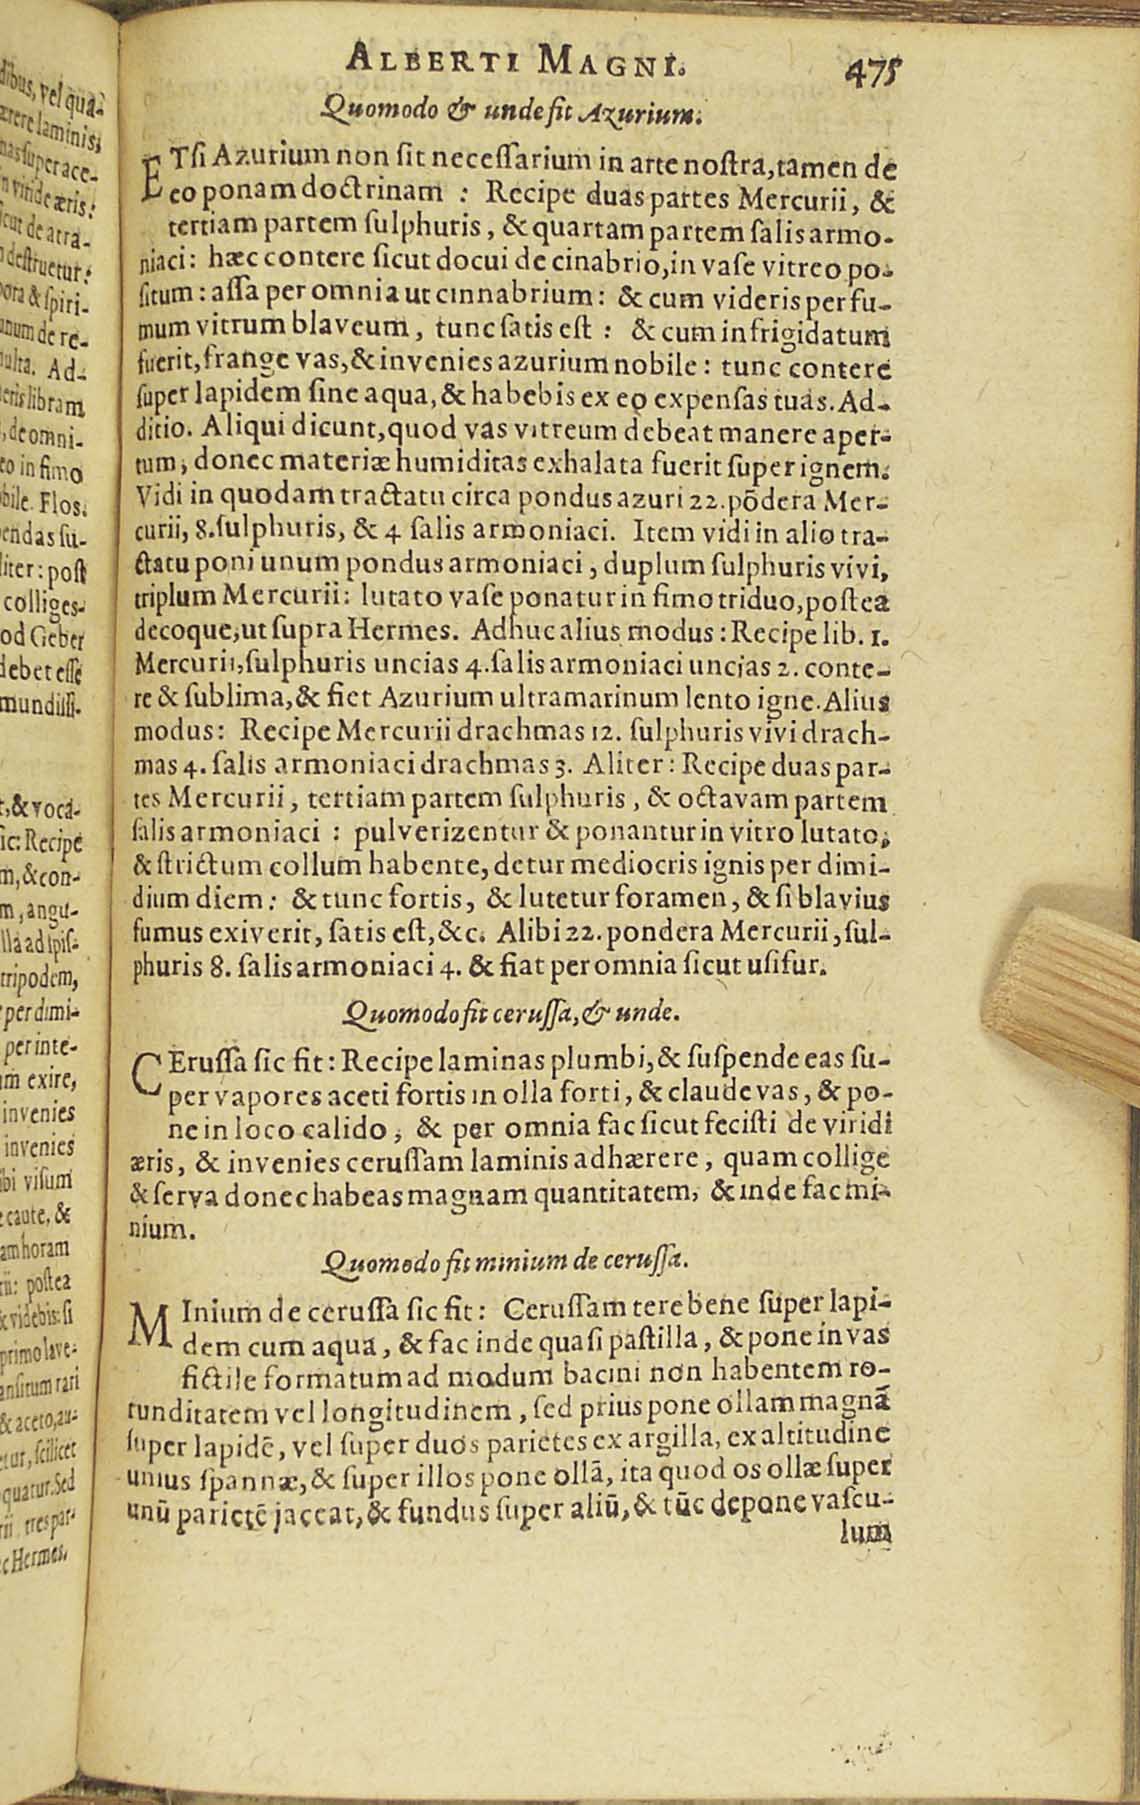 ALBERTI MAGNI. 475
Quomodo & unde fit Azurium.
ETſi Azurium non ſit neceſſarium in arte noſtra, tamen de
eo ponam doctrinam : Recipe duas partes Mercurii, &
tertiam partem ſulphuris, & quartam partem ſalis armo-
niaci: hæc contere ſicut docui de cinabrio, in vaſe vitreo po-
ſitum: aſſa per omnia ut cinnabrium: & cum videris per fu-
mum vitrum blaveum, tunc ſatis eſt : & cum infrigidatum
fuerit, frange vas, & invenies azurium nobile: tunc contere
ſuper lapidem ſine aqua, & habebis ex eo expenſas tuas. Ad-
ditio. Aliqui dicunt, quod vas vitreum debeat manere aper-
tum, donec materiæ humiditas exhalata fuerit ſuper ignem.
Vidi in quodam tractatu circa pondus azuri 22. põdera Mer-
curii, 8. ſulphuris, & 4 ſalis armoniaci. Item vidi in alio tra-
ctatu poni unum pondus armoniaci, duplum ſulphuris vivi,
triplum Mercurii: lutato vaſe ponatur in fimo triduo, poſtea
decoque, ut ſupra Hermes. Adhuc alius modus: Recipe lib. 1.
Mercurii, ſulphuris uncias 4. ſalis armoniaci uncias 2. conte-
re & ſublima, & fiet Azurium ultramarinum lento igne. Alius
modus: Recipe Mercurii drachmas 12. ſulphuris vivi drach-
mas 4. ſalis armoniaci drachmas 3. Aliter: Recipe duas par-
tes Mercurii, tertiam partem ſulphuris, & octavam partem
ſalis armoniaci : pulverizentur & ponantur in vitro lutato,
& ſtrictum collum habente, detur mediocris ignis per dimi-
dium diem: & tunc fortis, & lutetur foramen, & ſi blavius
fumus exiverit, ſatis eſt, &c. Alibi 22. pondera Mercurii, ſul-
phuris 8. ſalis armoniaci 4. & fiat per omnia ſicut uſifur.
Quomodo fit ceruſſa, & unde.
CEruſſa ſic fit: Recipe laminas plumbi, & ſuſpende eas ſu-
per vapores aceti fortis in olla forti, & claude vas, & po-
ne in loco calido, & per omnia fac ſicut feciſti de viridi
æris, & invenies ceruſſam laminis adhærere, quam collige
& ſerva donec habeas magnam quantitatem, & inde fac mi-
nium.
Quomodo fit minium de ceruſſa.
MInium de ceruſſa ſic fit: Ceruſſam tere bene ſuper lapi-
dem cum aqua, & fac inde quaſi paſtilla, & pone in vas
fictile formatum ad modum bacini non habentem ro-
tunditatem vel longitudinem, ſed prius pone ollam magnã
ſuper lapidẽ, vel ſuper duos parietes ex argilla, ex altitudine
unius ſpannæ, & ſuper illos pone ollã, ita quod os ollæ ſuper
unũ parietẽ jaceat, & fundus ſuper aliũ, & tũc depone vaſcu-
lum
dibus, vel qua-
ærere laminis;
nas ſuper ace-
n viride æris:
icut de atra-
deſtruetur:
ora & ſpiri-
unum de re-
multa. Ad-
eris libram
, de omni-
eo in fimo
obile. Flos.
endas ſu-
liter: poſt
colliges-
od Geber
debet eſſe
mundiſſi-
t, & voca-
ic: Recipe
m, & con-
m, angu-
lla ad ſpiſ-
tripodem,
per dimi-
per inte-
um exire,
invenies
invenies
ibi viſum
e caute, &
am horam
rii: poſtea
& videbis: ſi
primo lave-
anſitum rari
& aceto, au-
etur, ſcilicet
quatur. Sed
rii tres par-
c Hermes.